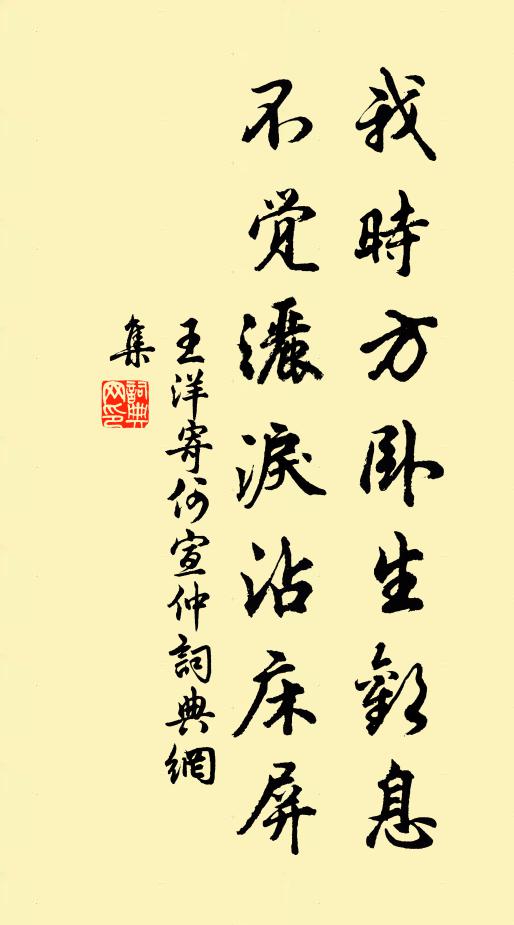 我時方卧生歎息
不觉灑淚沾床屏
王洋寄何宣仲詞典網
集
詞典
网印